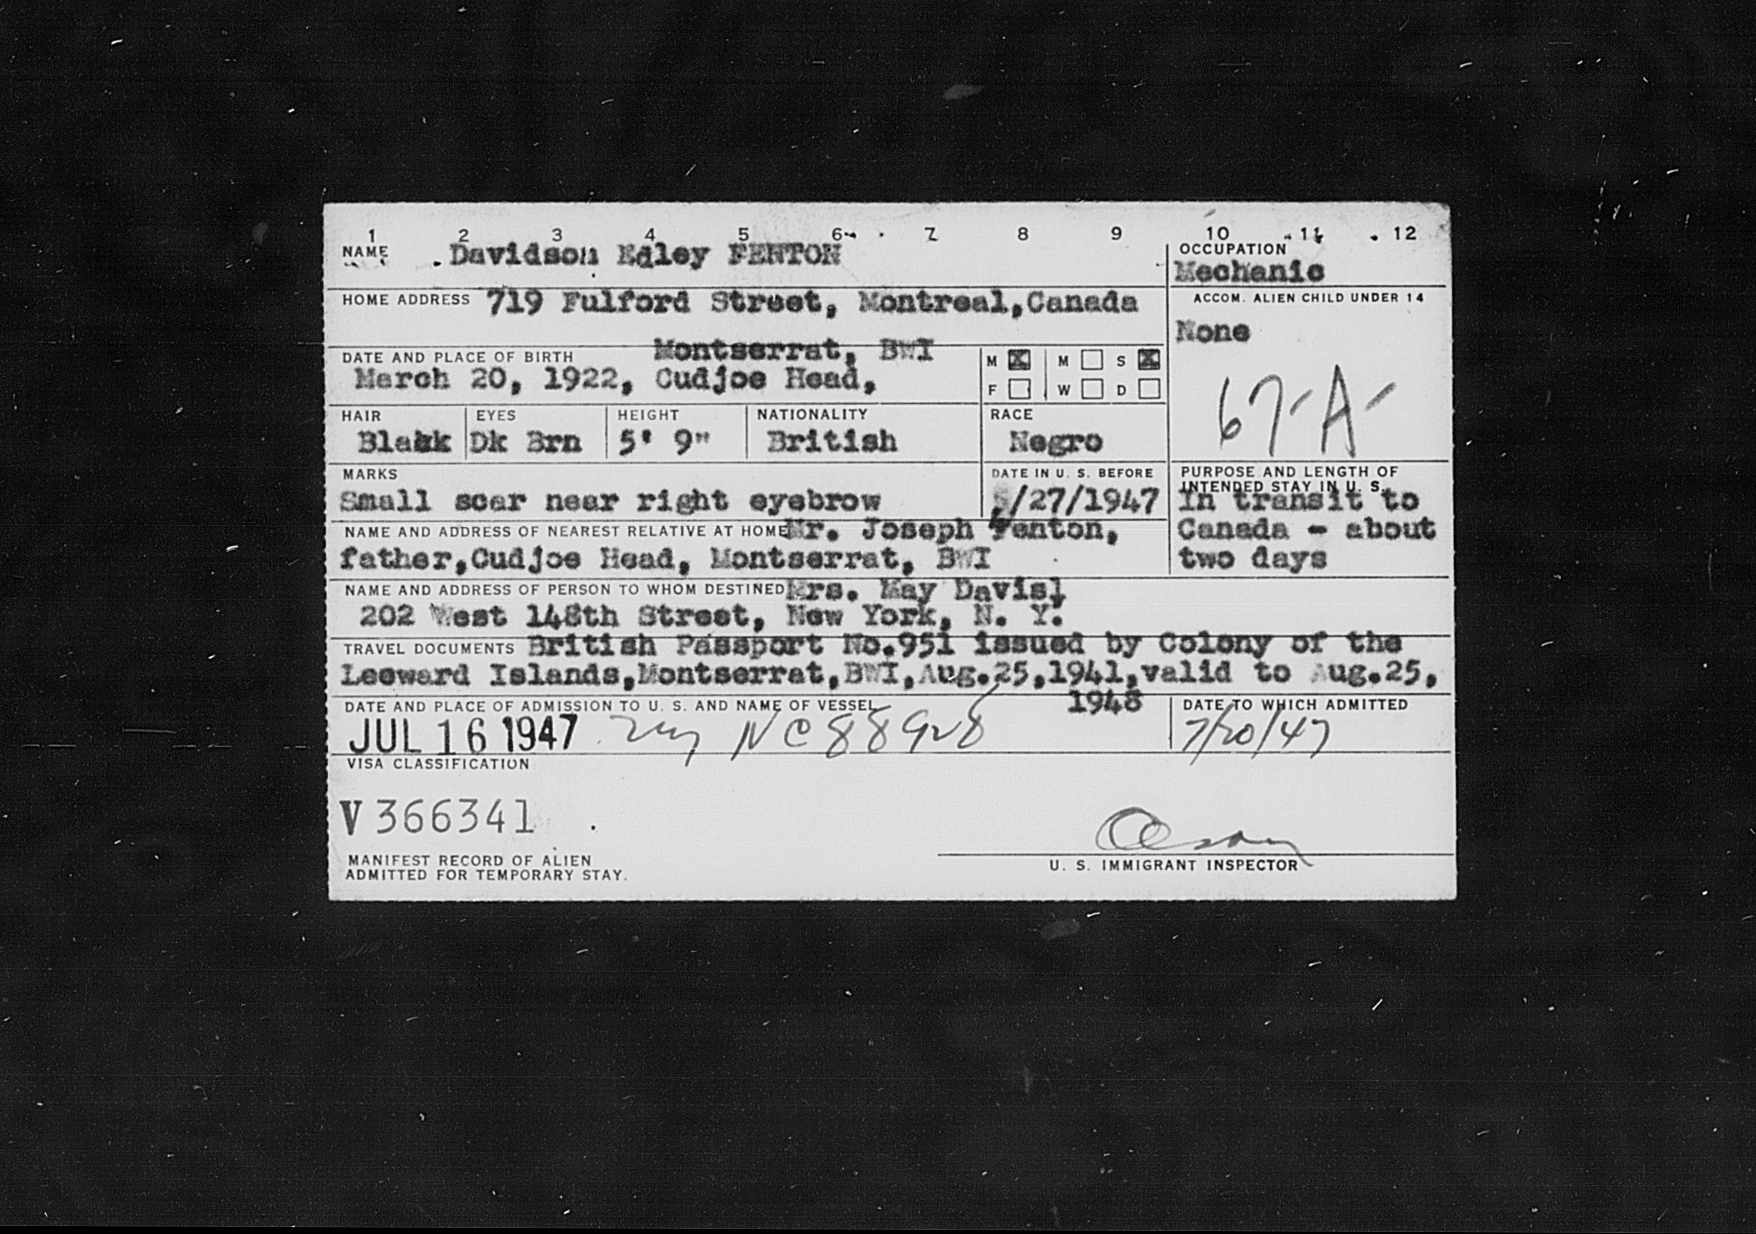 1 2 3 4 5 6 7 8 9 10 11 12
NAME Davidson Edley FENTON
OCCUPATION
Mechanic
HOME ADDRESS 719 Fulford Street, Montreal,Canada
ACCOM. ALIEN CHILD UNDER 14
None
67-A-
DATE AND PLACE OF BIRTH Montserrat, BWI
March 20, 1922, Cudjoe Head,
M X M S X
F W D
HAIR EYES HEIGHT NATIONALITY RACE
Blakk Dk Brn 5' 9" British Negro
MARKS
Small scar near right eyebrow
DATE IN U. S. BEFORE
5/27/1947
PURPOSE AND LENGTH OF
INTENDED STAY IN U. S.
In transit to
Canada - about
two days
NAME AND ADDRESS OF NEAREST RELATIVE AT HOME Mr. Joseph Fenton,
father,Cudjoe Head, Montserrat, BWI
NAME AND ADDRESS OF PERSON TO WHOM DESTINED Mrs. May Davis,
202 West 148th Street, New York, N. Y.
TRAVEL DOCUMENTS British Passport No.951 issued by Colony of the
Leeward Islands,Montserrat,BWI,Aug.25,1941,valid to Aug.25,
1948
DATE AND PLACE OF ADMISSION TO U. S. AND NAME OF VESSEL
JUL 16 1947 NC 88928
DATE TO WHICH ADMITTED
7/20/47
VISA CLASSIFICATION
V 366341
MANIFEST RECORD OF ALIEN
ADMITTED FOR TEMPORARY STAY.
U. S. IMMIGRANT INSPECTOR